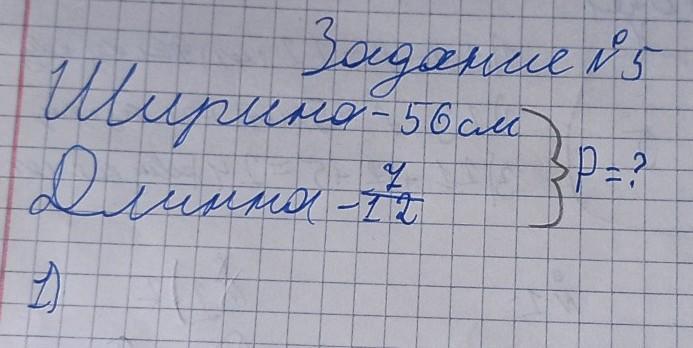 Задание №5
Ширина - 56 см
Длинна - 7/12
P = ?
1)